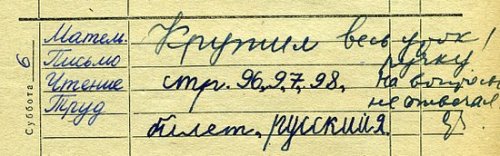 Суббота 6
Матем. Крутил весь урок!
Письмо ручку
Чтение стр. 96, 97, 98, на вопросы
Труд не отвечал
билет, русский я.